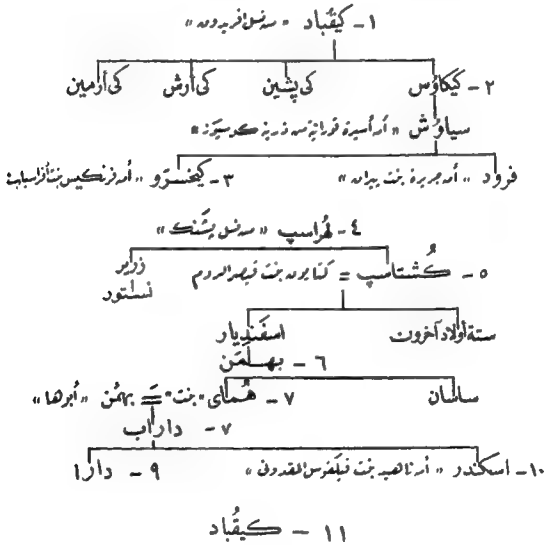 ١ - كيقُباد « من نسل افريدون »
٢ - كيكاوُس كى پشين كى آرش كى أرمين
سياوُش « أمه أسيرة تورانية من ذرية كرسيوز »
فرود « أمه جريرة بنت بيران » ٣ - كيخسرَو « أمه فرنكيس بنت أفراسياب »
٤ - لهُراسپ « من نسل پشَنك »
٥ - كُشتاسپ = كتايون بنت قيصر الروم زرير
نستور
ستة أولاد آخرون اسفَنديار
٦ - بهمَن
ساسان ٧ - هُماى "بنت" = بهمُن « أبوها »
٧ - داراب
١٠ - اسكندر « أمه ناهيد بنت فيلقوس المقدونى » ٩ - دارا
١١ - كيقُباد